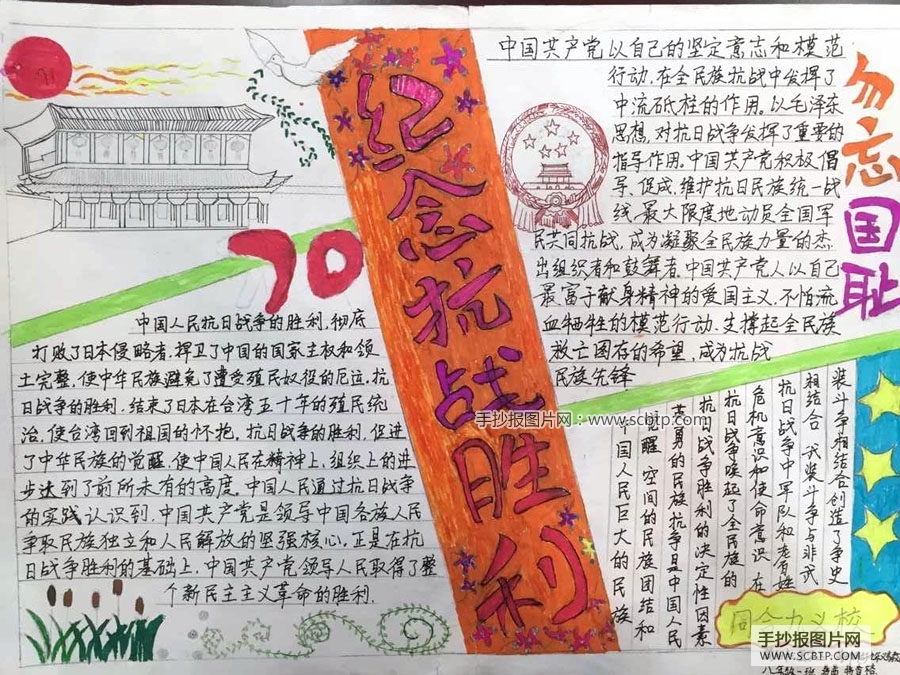 纪念抗战胜利
70
中国人民抗日战争的胜利,彻底
打败了日本侵略者,捍卫了中国的国家主权和领
土完整,使中华民族避免了遭受殖民奴役的厄运,抗
日战争的胜利,结束了日本在台湾五十年的殖民统
治,使台湾回到祖国的怀抱,抗日战争的胜利,促进
了中华民族的觉醒,使中国人民在精神上,组织上的进
步达到了前所未有的高度,中国人民通过抗日战争
的实践认识到,中国共产党是领导中国各族人民
争取民族独立和人民解放的坚强核心,正是在抗
日战争胜利的基础上,中国共产党领导人民取得了整
个新民主主义革命的胜利.
中国共产党以自己的坚定意志和模范
行动,在全民族抗战中发挥了
中流砥柱的作用。以毛泽东
思想,对抗日战争发挥了重要的
指导作用,中国共产党积极倡
导、促成、维护抗日民族统一战
线,最大限度地动员全国军
民共同抗战,成为凝聚全民族力量的杰
出组织者和鼓舞者,中国共产党人以自己
最富于献身精神的爱国主义,不怕流
血牺牲的模范行动,支撑起全民族
救亡图存的希望,成为抗战
民族先锋
勿忘国耻
装斗争相结合创造了争史
相结合 武装斗争与非武
抗日战争中军队和老百姓
危机意识和使命意识 在
抗日战争唤起了全民族的
抗日战争胜利的决定性因素
英勇的民族抗争是中国人民
醒 空间的民族团结和
中国人民巨大的民族
手抄报图片网:www.scbtp.com
手抄报图片网
WWW.SCBTP.COM
八年级一班